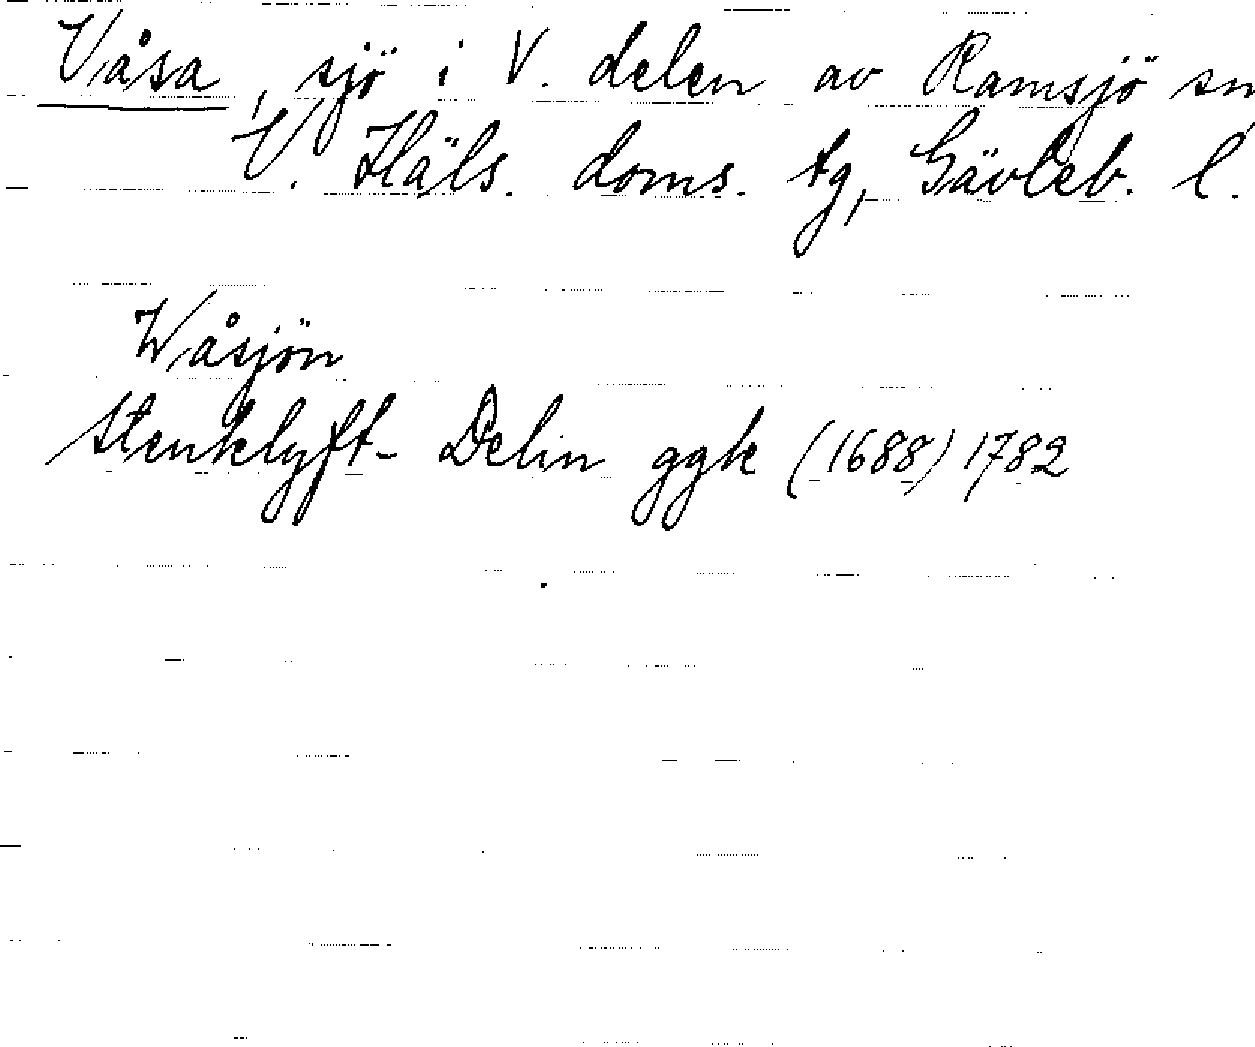 Våsa, sjö i V. delen av Ramsjö sn
V. Häls. doms. tg, Gävleb. l.
Wåsjön
Stenklyft- Delin ggk (1688) 1782